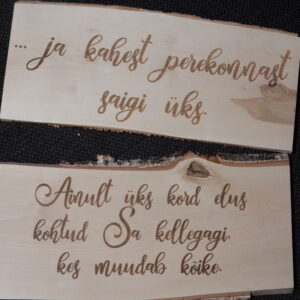 ... ja kahest perekonnast
saigi üks.
Ainult üks kord elus
kohtud Sa kellegagi,
kes muudab kõike.